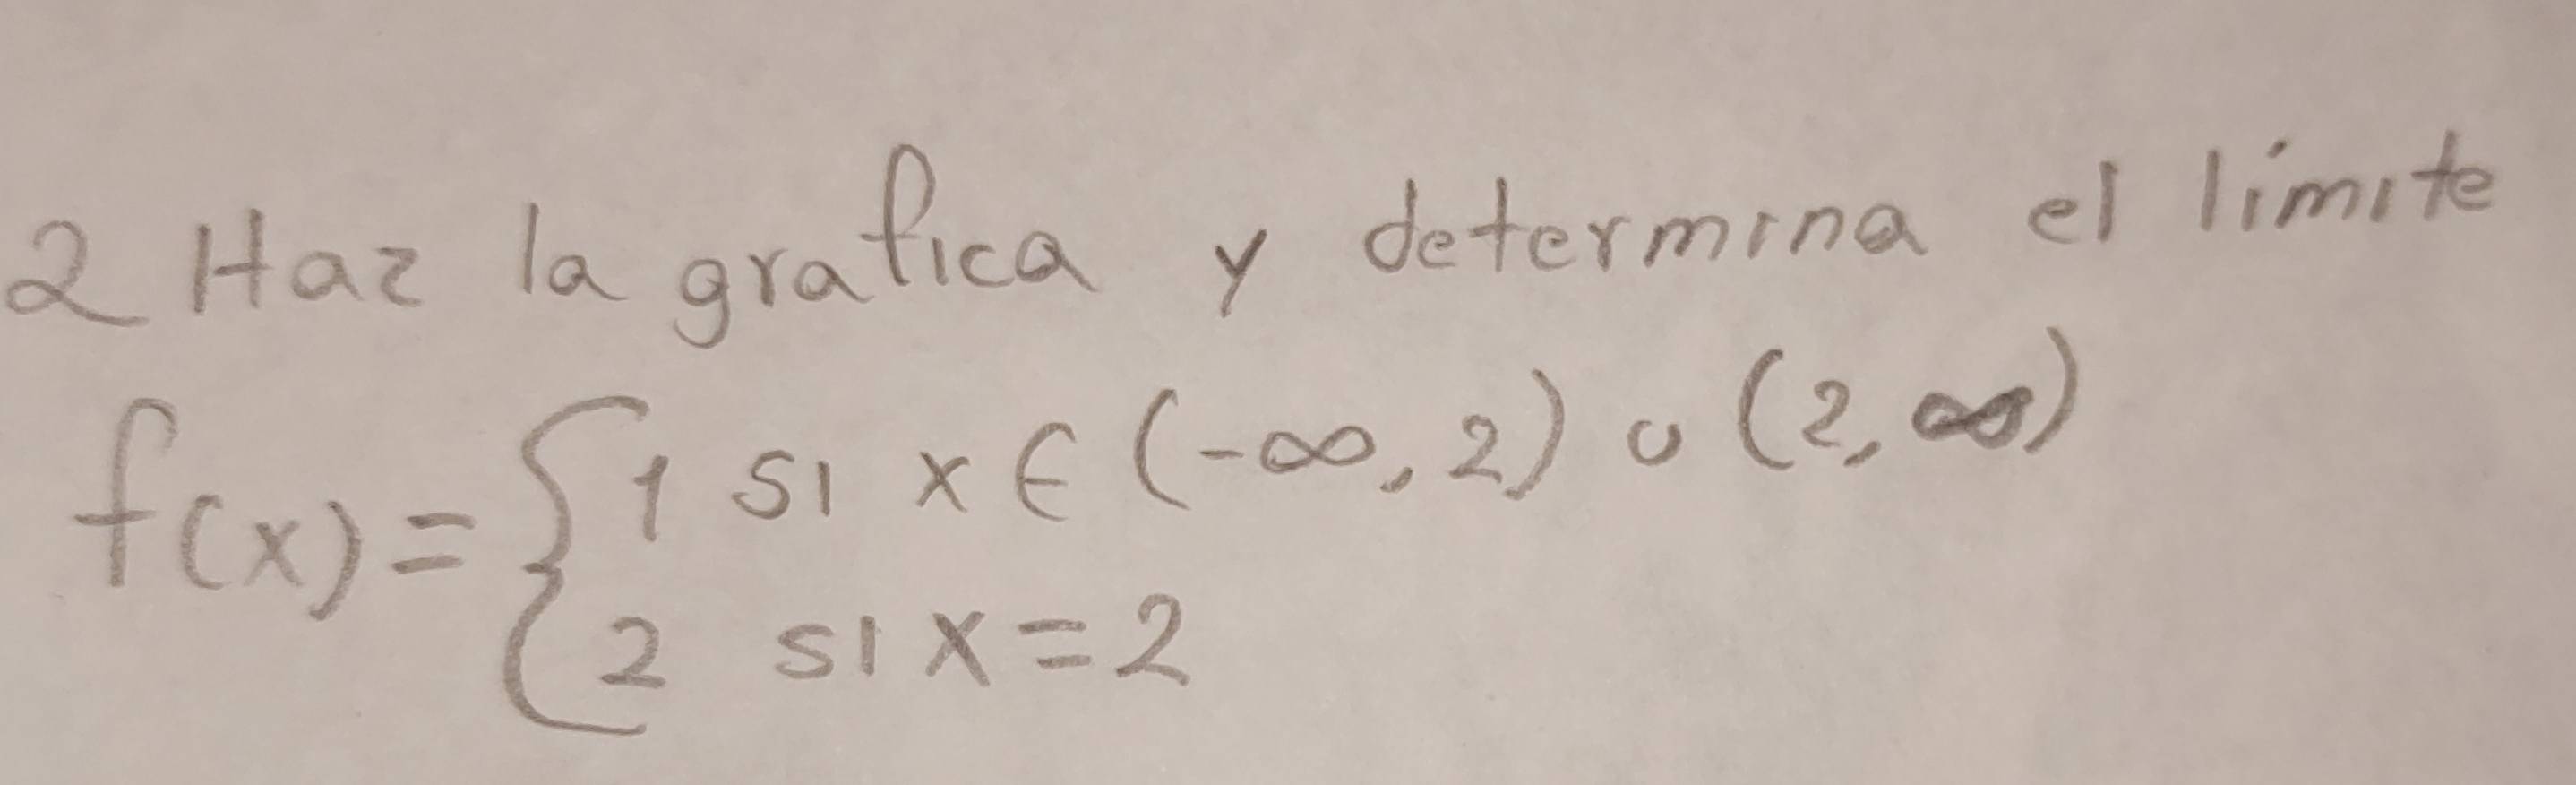 2 Haz la grafica y determina el límite
f(x) = { 1 si x ∈ (-∞, 2) ∪ (2, ∞)
2 si x = 2